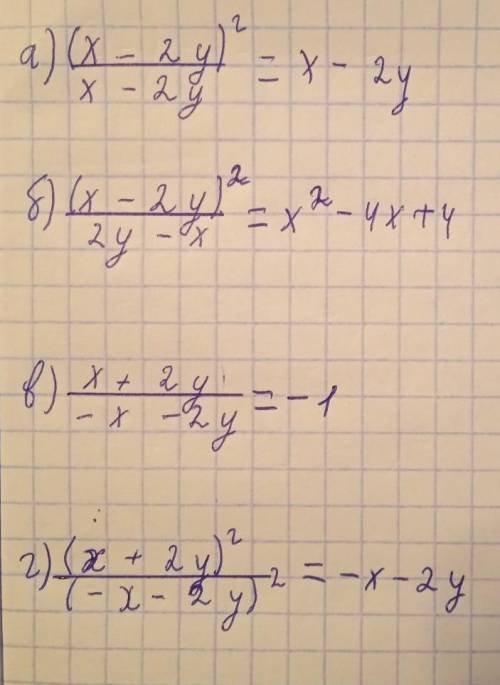 а) (x - 2y)² / x - 2y = x - 2y
б) (x - 2y)² / 2y - x = x² - 4x + 4
в) x + 2y / -x - 2y = -1
г) (x + 2y)² / (-x - 2y)² = -x - 2y